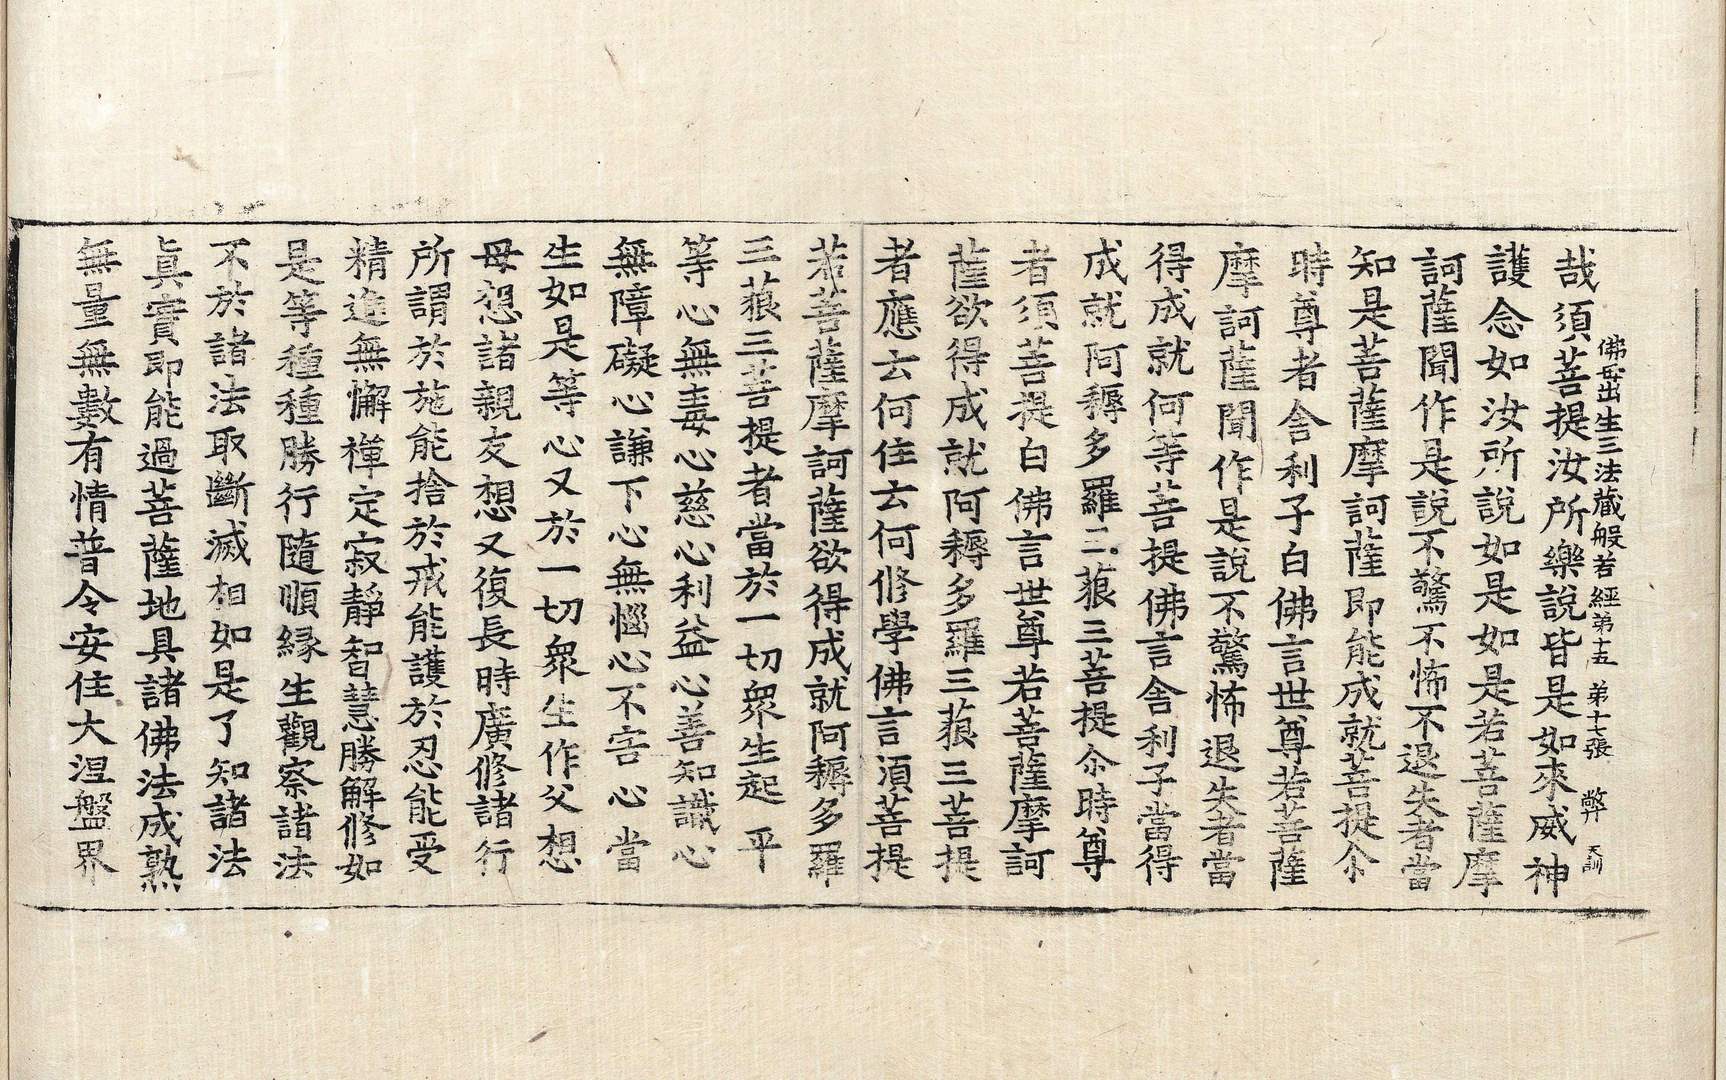 佛母出生三法藏般若經第十五　第十七張　弊　天訓
哉須菩提汝所樂說皆是如來威神
護念如汝所說如是如是若菩薩摩
訶薩聞作是說不驚不怖不退失者當
知是菩薩摩訶薩即能成就菩提尒
時尊者舍利子白佛言世尊若菩薩
摩訶薩聞作是說不驚怖退失者當
得成就何等菩提佛言舍利子當得
成就阿耨多羅三藐三菩提尒時尊
者須菩提白佛言世尊若菩薩摩訶
薩欲得成就阿耨多羅三藐三菩提
者應云何住云何修學佛言須菩提
若菩薩摩訶薩欲得成就阿耨多羅
三藐三菩提者當於一切衆生起平
等心無毒心慈心利益心善知識心
無障礙心謙下心無惱心不害心當
生如是等心又於一切衆生作父想
母想諸親友想又復長時廣修諸行
所謂於施能捨於戒能護於忍能受
精進無懈禪定寂靜智慧勝解修如
是等種種勝行隨順緣生觀察諸法
不於諸法取斷滅相如是了知諸法
眞實即能過菩薩地具諸佛法成熟
無量無數有情普令安住大涅盤界